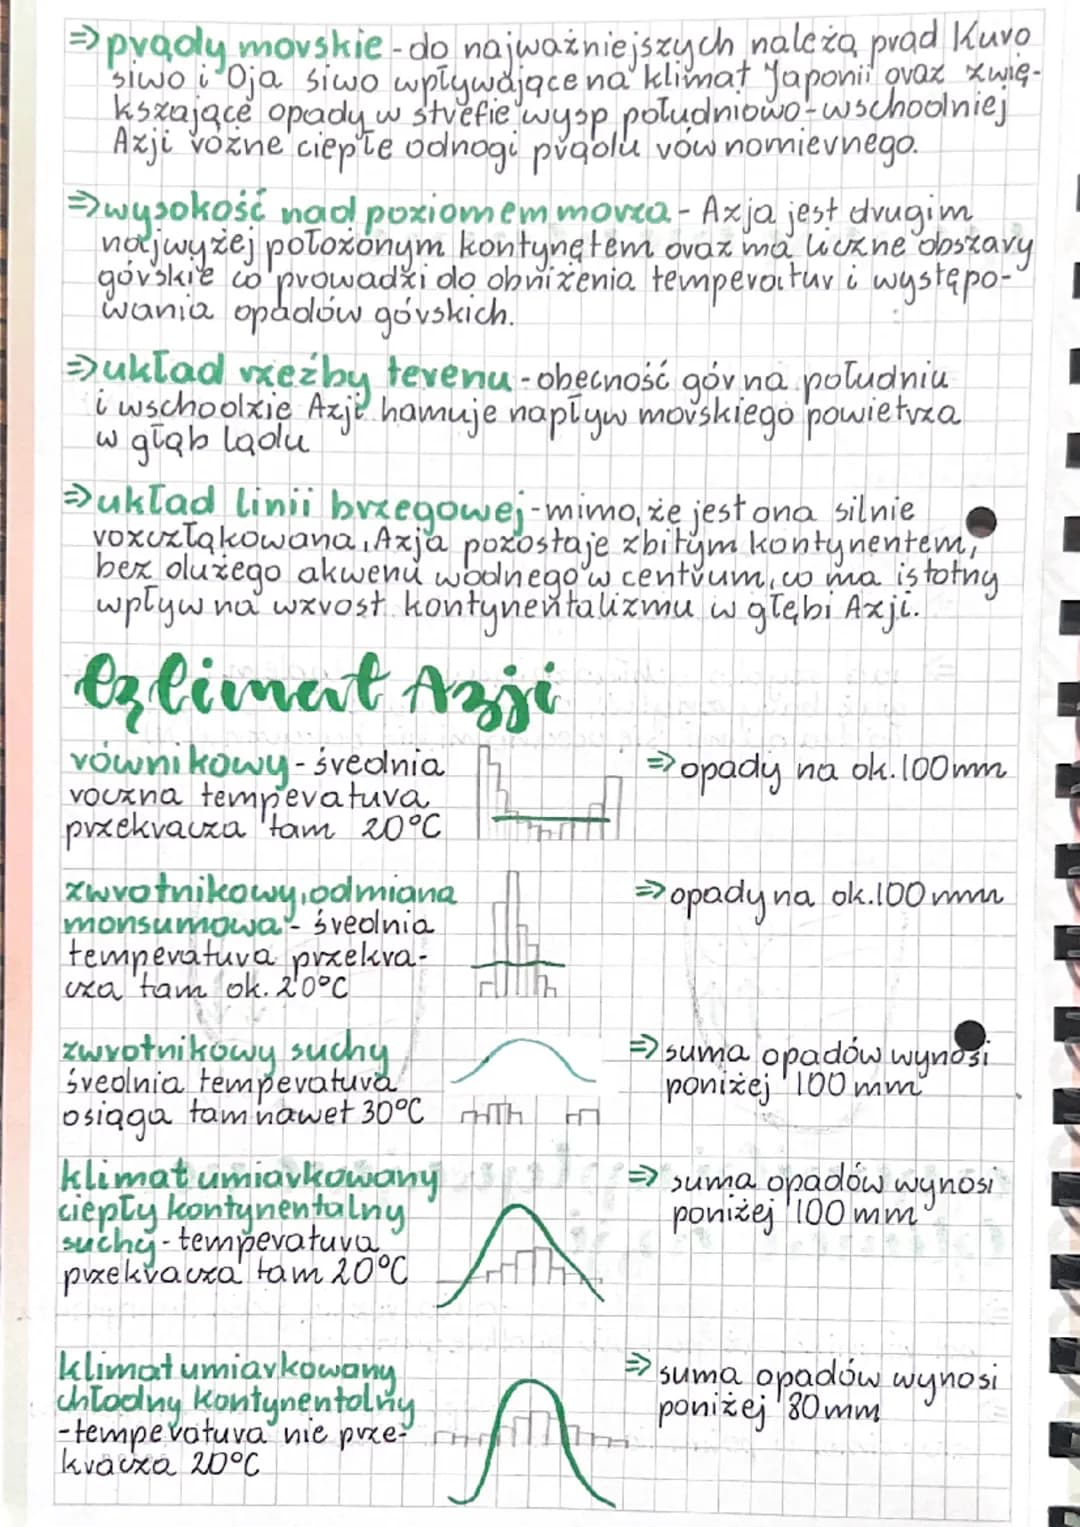 ⇒ prądy morskie - do najważniejszych należą prąd Kuro
siwo i Oja siwo wpływające na klimat Japonii oraz zwię-
kszające opady w strefie wysp południowo-wschodniej
Azji różne ciepłe odnogi prądu równomiernego.
⇒ wysokość nad poziomem morza - Azja jest drugim
najwyżej położonym kontynętem oraz ma liczne obszary
górskie co prowadzi do obniżenia temperatur i występo-
wania opadów górskich.
⇒ układ rzeźby terenu - obecność gór na południu
i wschodzie Azji hamuje napływ morskiego powietrza
w głąb lądu
⇒ układ linii brzegowej - mimo, że jest ona silnie
rozcztąkowana, Azja pozostaje zbitym kontynentem,
bez dużego akwenu wodnego w centrum, co ma istotny
wpływ na wzrost kontynentalizmu w głębi Azji.
klimat Azji
równikowy - średnia
roczna temperatura
przekracza tam 20°C
⇒ opady na ok. 100mm
zwrotnikowy, odmiana
monsumowa - średnia
temperatura przekra-
cza tam ok. 20°C
⇒ opady na ok. 100 mm
zwrotnikowy suchy
średnia temperatura
osiąga tam nawet 30°C
⇒ suma opadów wynosi
poniżej 100 mm
klimat umiarkowany
ciepły kontynentalny
suchy - temperatura
przekracza tam 20°C
⇒ suma opadów wynosi
poniżej 100 mm
klimat umiarkowany
chłodny kontynentalny
- temperatura nie prze-
kracza 20°C
⇒ suma opadów wynosi
poniżej 80mm